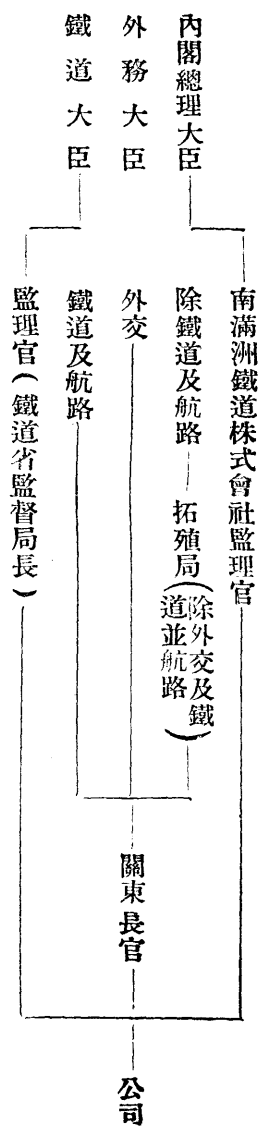 內閣總理大臣
外務大臣
鐵道大臣
南滿洲鐵道株式會社監理官
除鐵道及航路
拓殖局(除外交及鐵
道並航路)
外交
鐵道及航路
監理官(鐵道省監督局長)
關東長官
公司